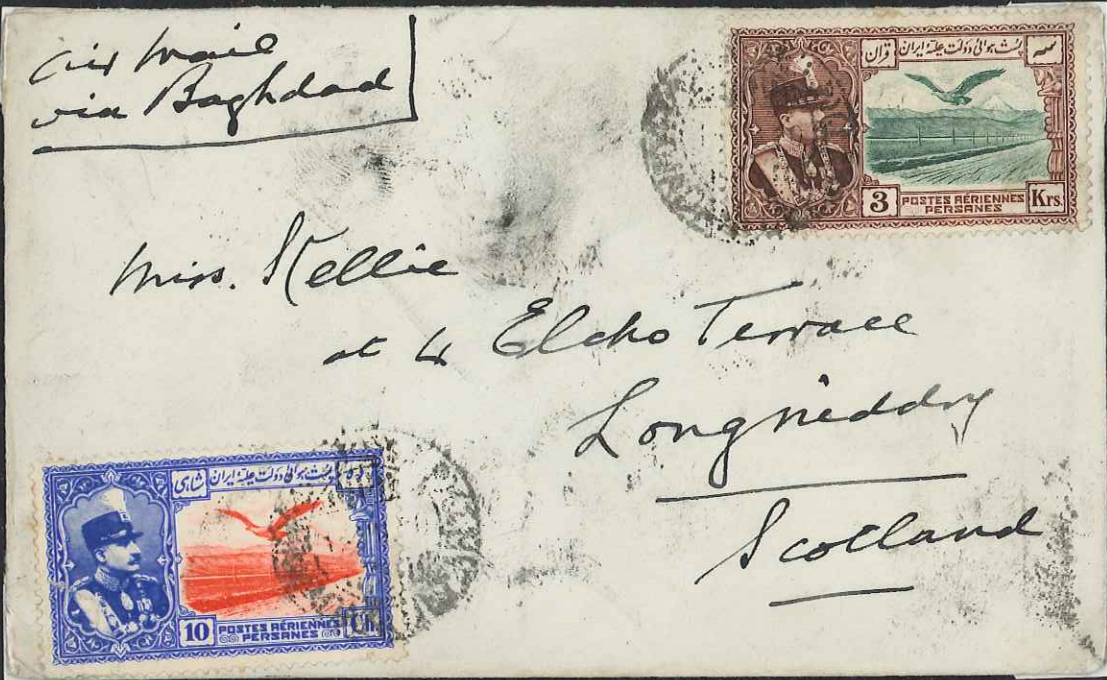 air mail
via Baghdad
قران پست هوائی دولت علیه ایران سه
3 POSTES AÉRIENNES PERSANES Krs.
Miss. Kellie
at 4 Elcho Terrace
Longniddry
Scotland
شاهی پست هوائی دولت علیه ایران
10 POSTES AÉRIENNES PERSANES Ch.